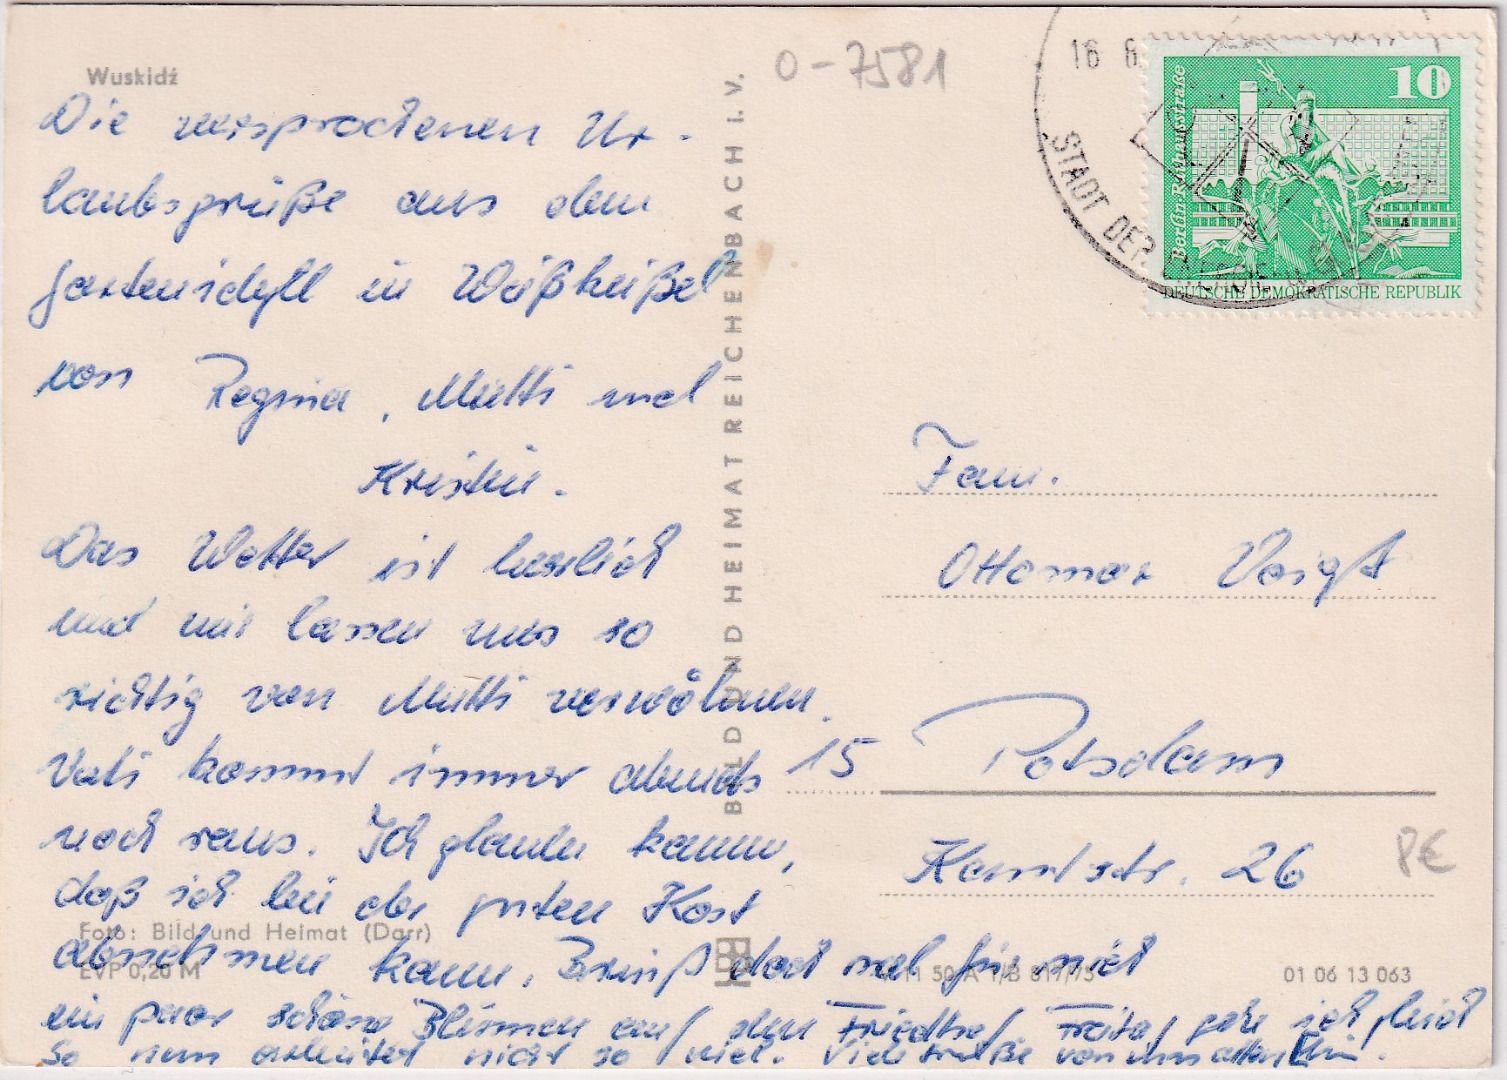 Wuskidź
Die versprochenen Ur-
laubsgrüße aus dem
Gartenidyll in Weißkeißel
von Regina, Mutti und
Kristin.
Das Wetter ist herrlich
und wir lassen uns so
richtig von Mutti verwöhnen.
Vati kommt immer abends
noch raus. Ich glaube kaum,
daß ich bei der guten Kost
abnehmen kann. Bring doch mal für mich
ein paar schöne Blumen auf den Friedhof, Freitag gehe ich gleich
So nun arbeitet nicht so viel. Viele Grüße von uns allen
Foto: Bild und Heimat (Darr)
EVP 0,20 M
BILD UND HEIMAT REICHENBACH I. V.
0-7581
16 6
STADT DER
Berlin-Rathausstraße
10
DEUTSCHE DEMOKRATISCHE REPUBLIK
Fam.
Ottomar Voigt
15 Potsdam
Kantstr. 26
8€
A 1/B 817/75
01 06 13 063